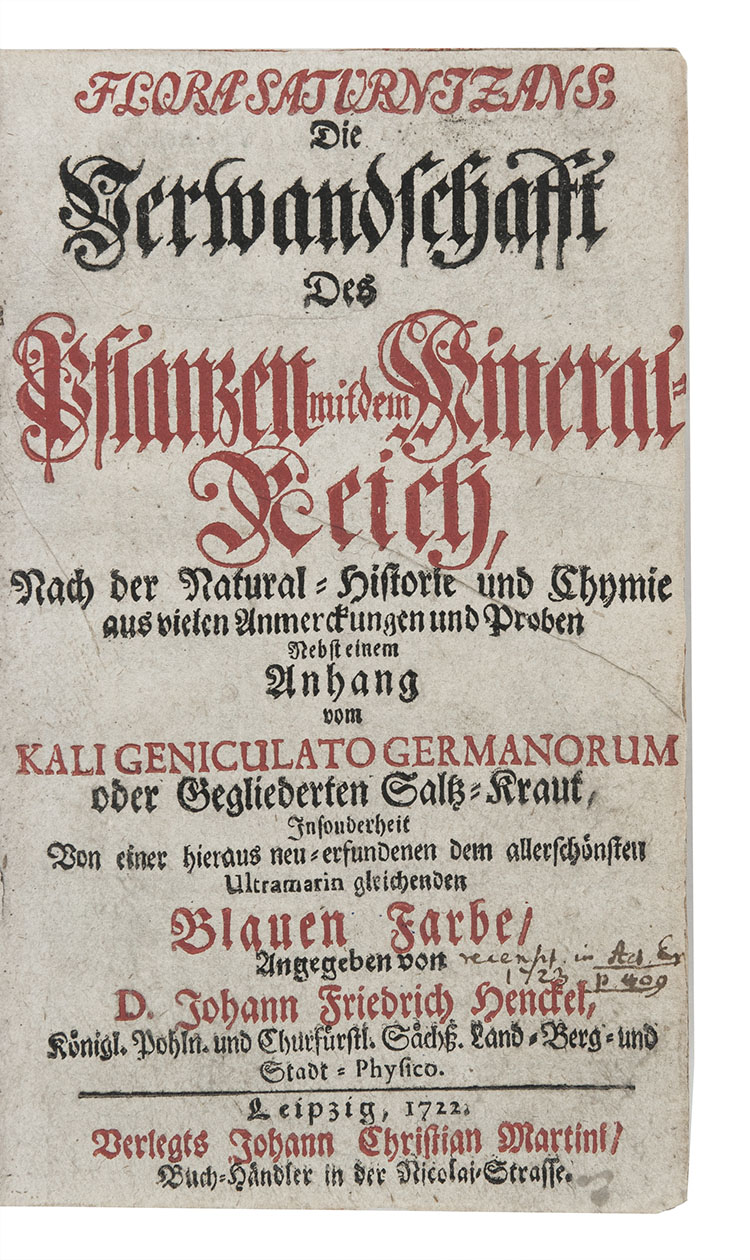 FLORA SATURNIZANS,
Die
Verwandschafft
Des
Pflanzen mit dem Mineral-
Reich,
Nach der Natural-Historie und Chymie
aus vielen Anmerckungen und Proben
Nebst einem
Anhang
vom
KALI GENICULATO GERMANORUM
oder Gegliederten Saltz-Kraut,
Insonderheit
Von einer hieraus neu-erfundenen dem allerschönsten
Ultramarin gleichenden
Blauen Farbe/
Angegeben von recens. in Act. Er
1723 p. 409
D. Johann Friedrich Henckel,
Königl. Pohln. und Churfürstl. Sächß. Land-Berg-und
Stadt-Physico.
Leipzig, 1722.
Verlegts Johann Christian Martini/
Buch-Händler in der Nicolai-Strasse.